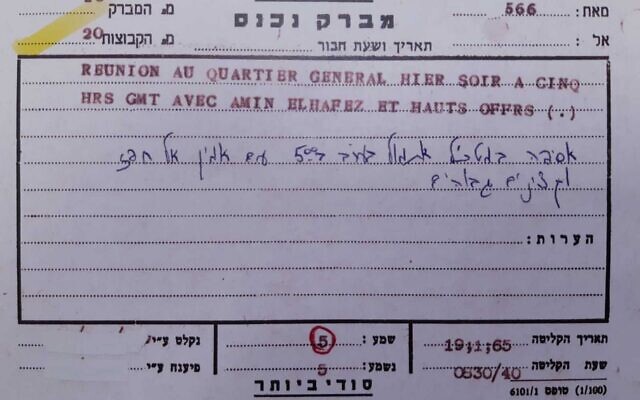 מאת: 566
מברק נכנס
מ. המברק
אל:
תאריך ושעת חבור
מ. הקבוצות 20
REUNION AU QUARTIER GENERAL HIER SOIR A CINQ
HRS GMT AVEC AMIN ELHAFEZ ET HAUTS OFFRS (.)
אסיפה במטכ"ל אתמול בערב ב־500 עם אמין אל חפז
וקצינים גבוהים
הערות:
תאריך הקליטה 19;1;65
שמע: 5
נקלט ע"י
שעת הקליטה 0530/40
נשמע: 5
פיענח ע"י
סודי ביותר
(1/100) טופס 6101/1